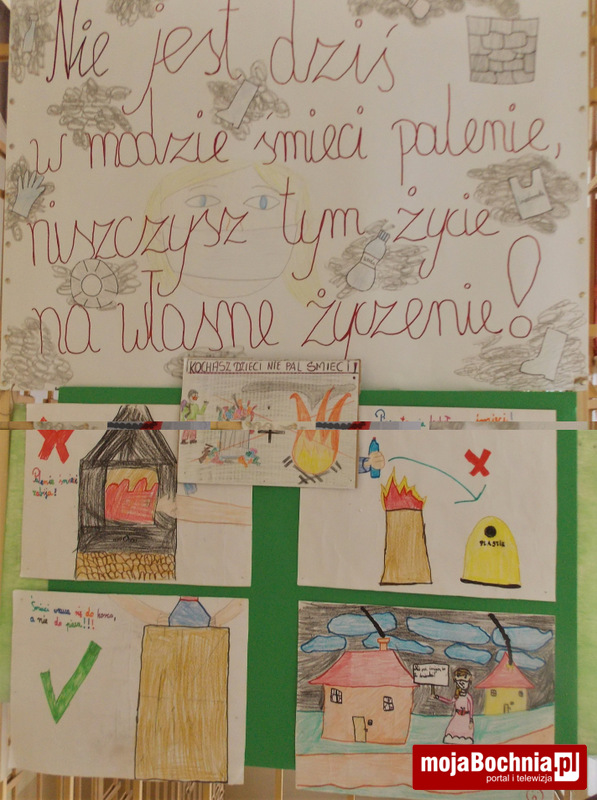 Nie jest dziś
w modzie śmieci palenie,
niszczysz tym życie
na własne życzenie!
KOCHASZ DZIECI NIE PAL ŚMIECI!
Palenie śmieci
zabija!
PLASTIK
Śmieci wrzuca się do kosza,
a nie do pieca!!!
mojaBochnia.pl
portal i telewizja